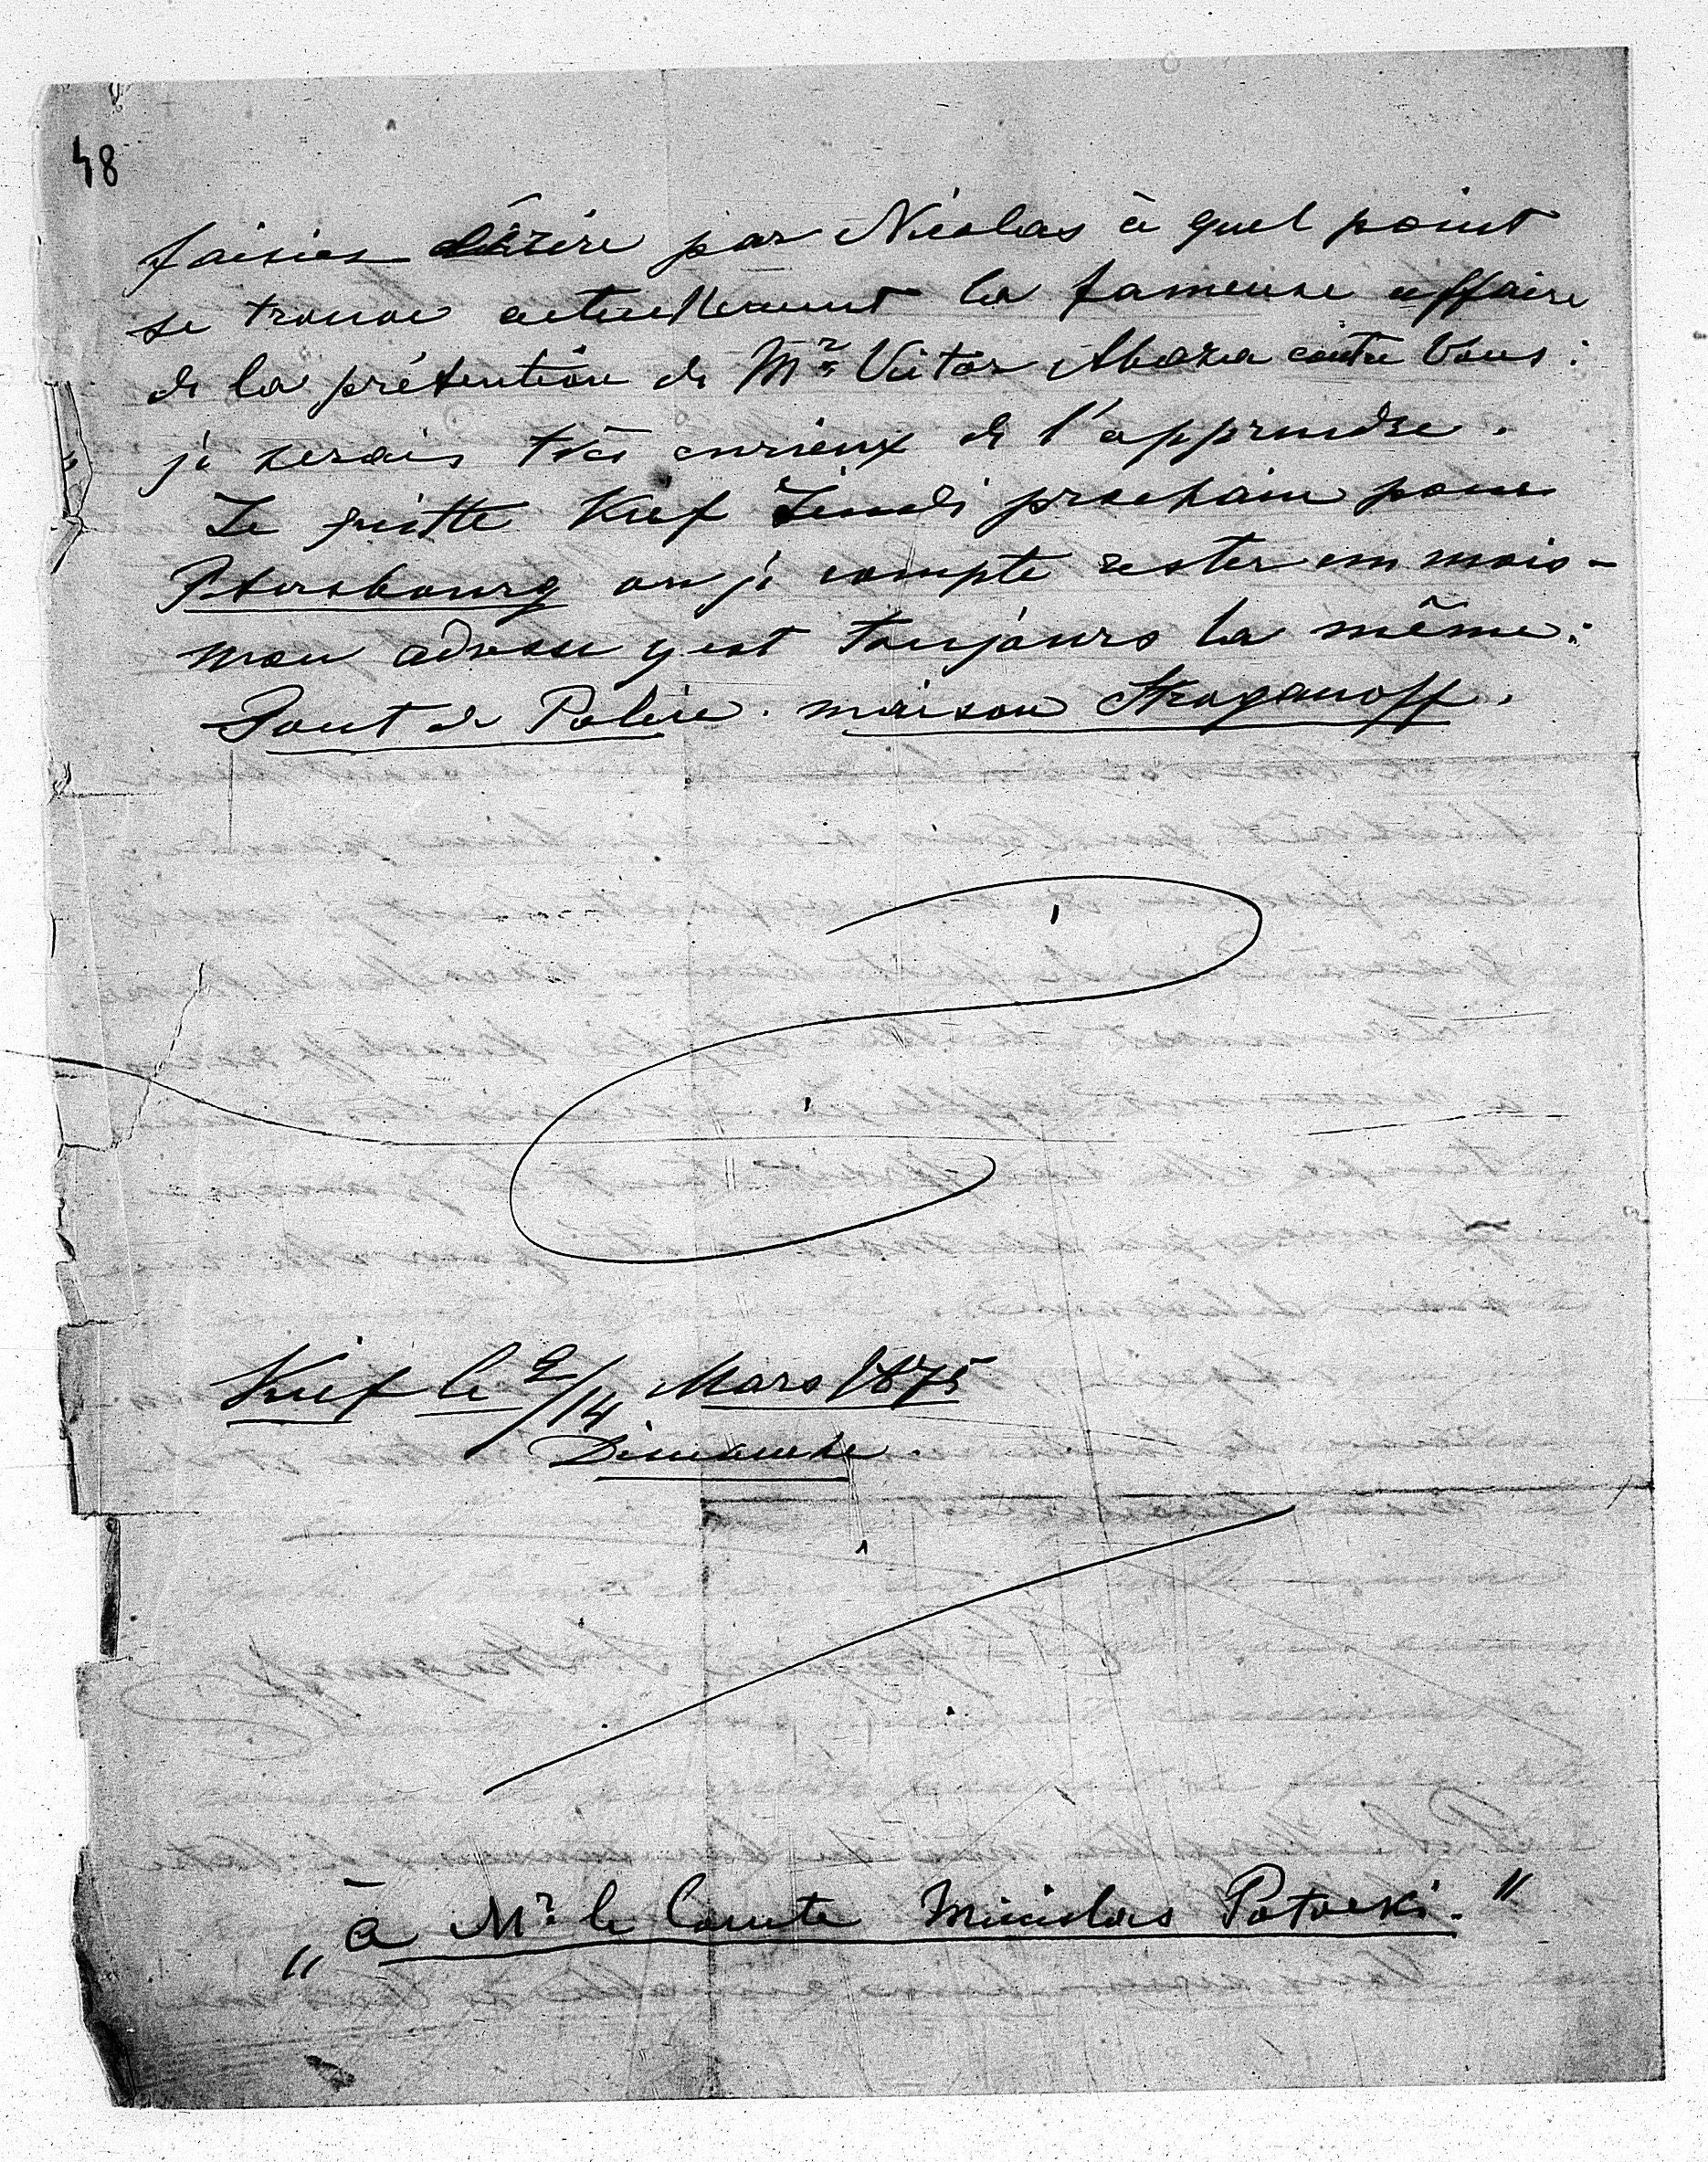 48
faisiez écrire par Nicolas à quel point
se trouve actuellement la fameuse affaire
de la prétention de Mr Victor Abaza contre Vous:
je serais très curieux de l'apprendre.
Je quitte Kief Jeudi prochain pour
Pétersbourg ou je compte rester un mois -
mon adresse y est toujours la même:
Pont de Police. maison Stroganoff.
Kief le 2/14 Mars 1875
Dimanche.
„à Mr le Comte Miecislas Potocki."